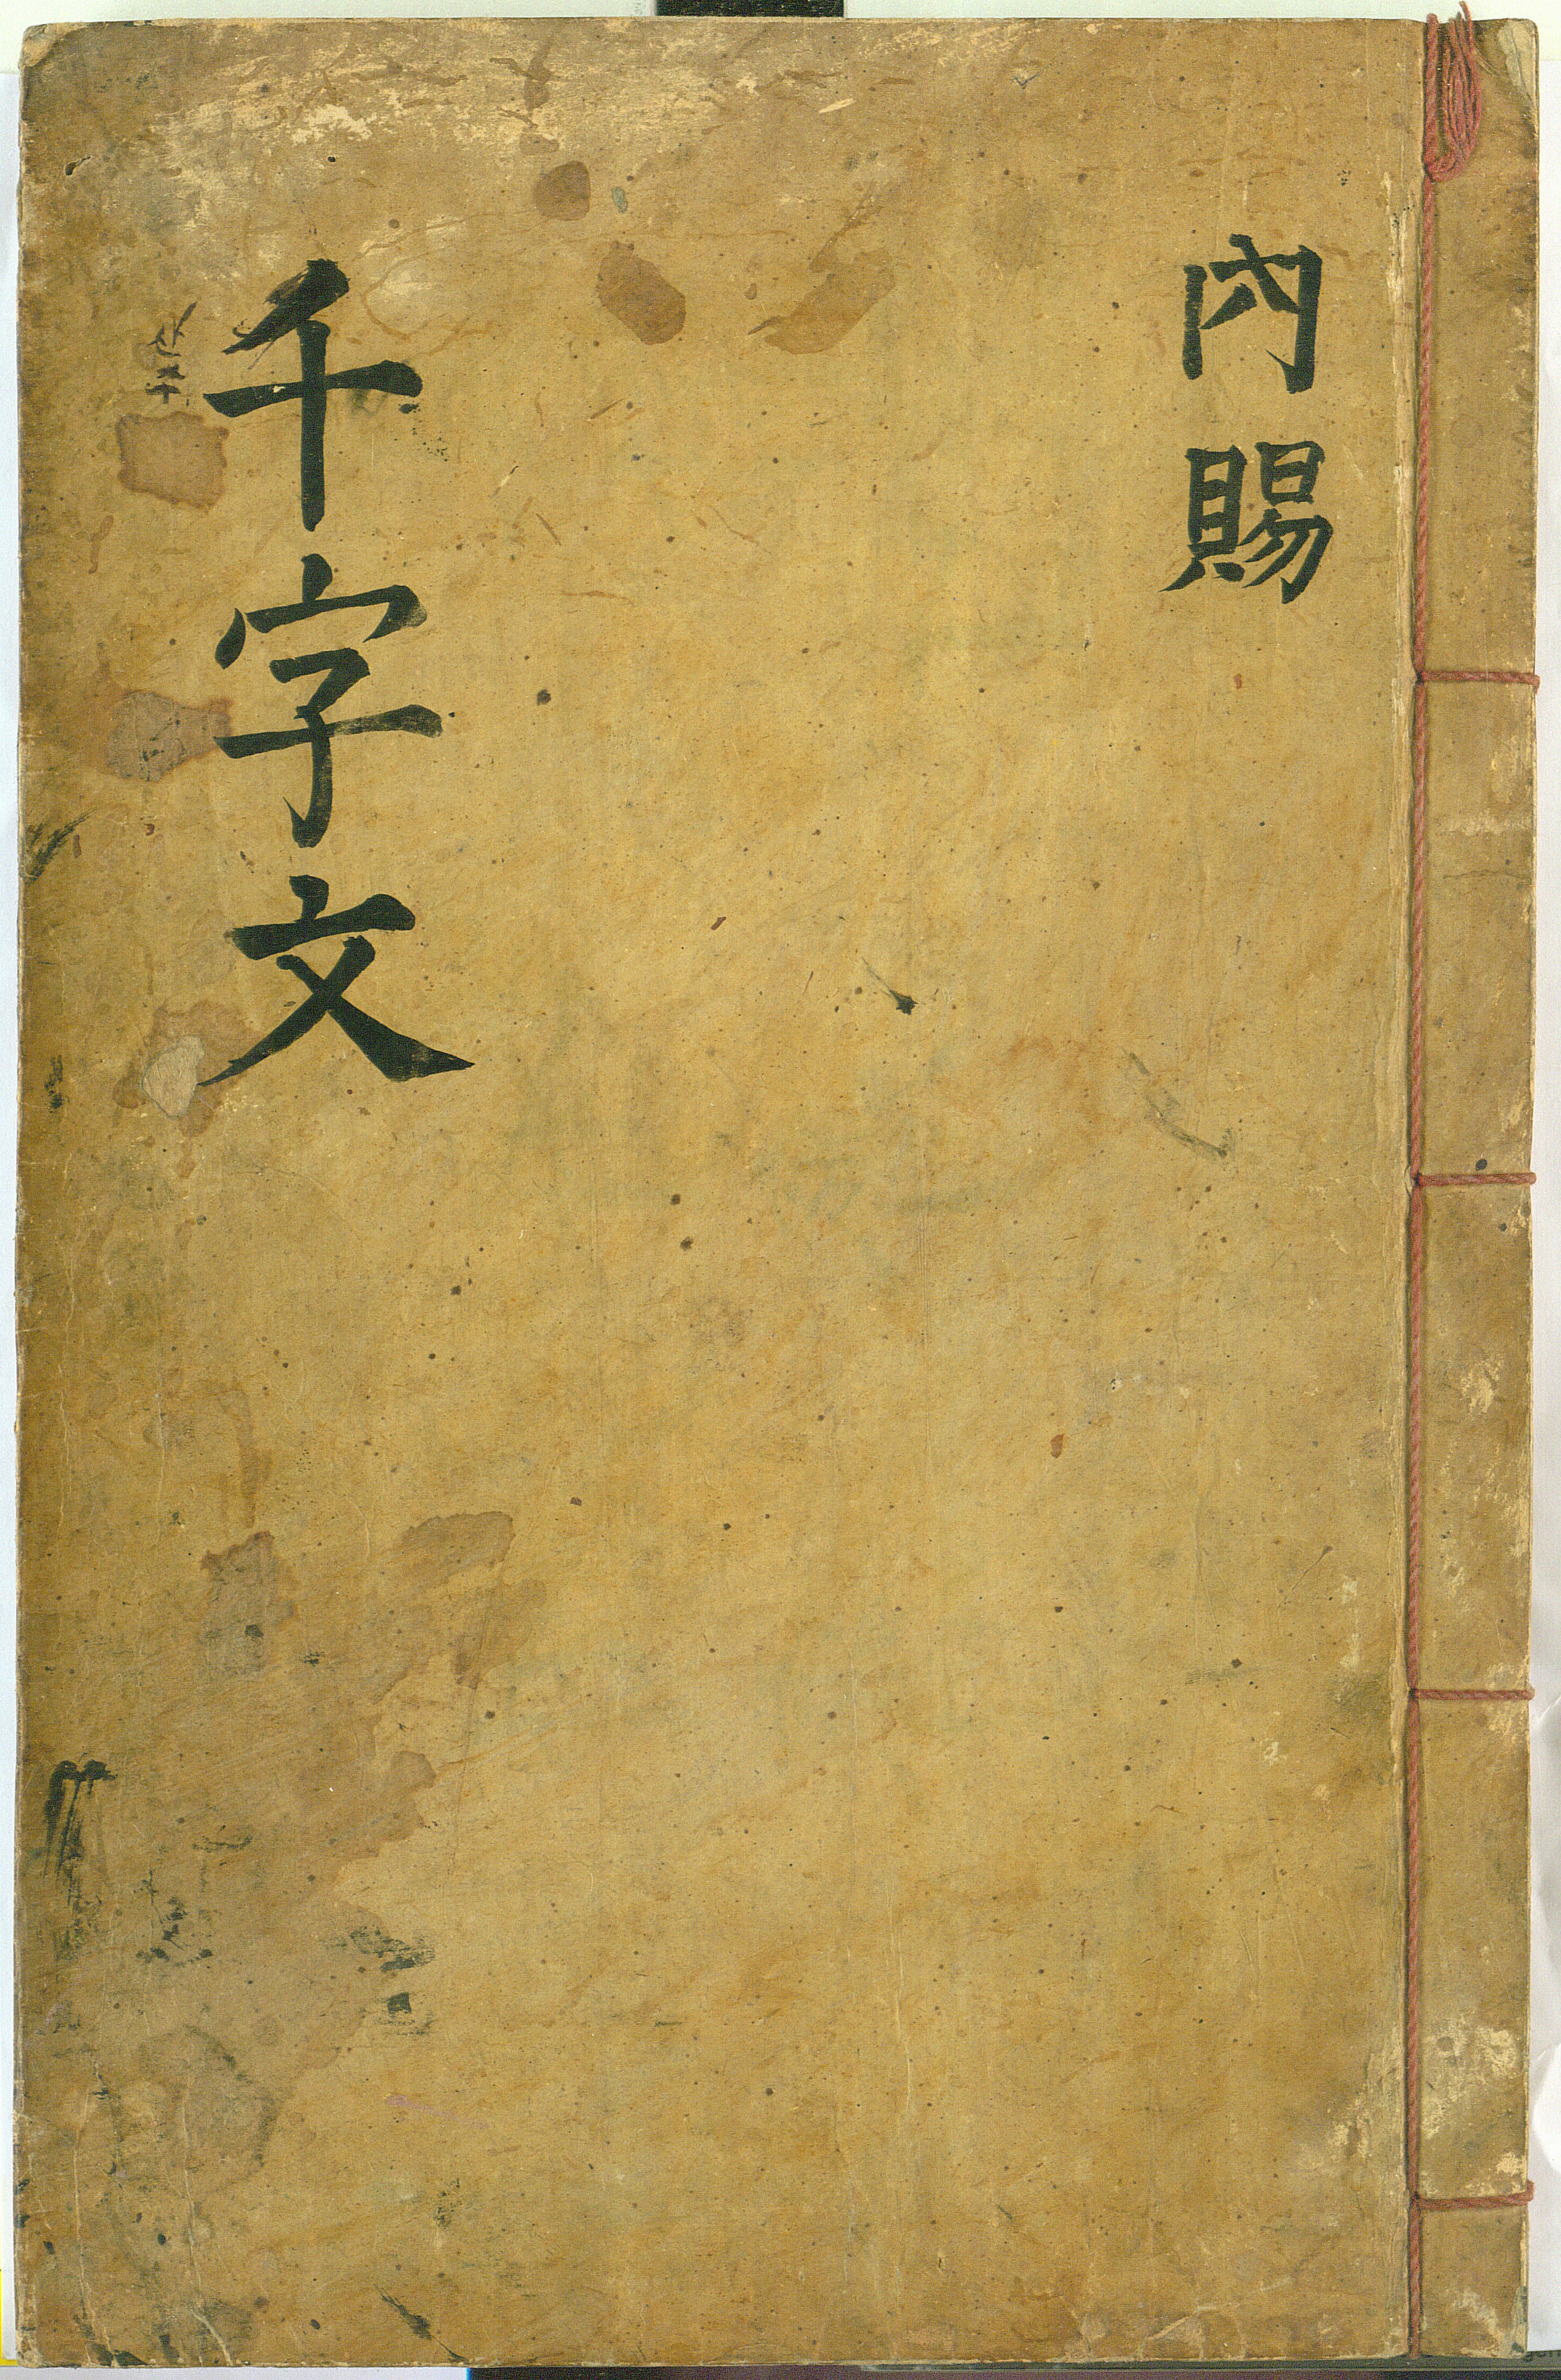 內賜
千字文